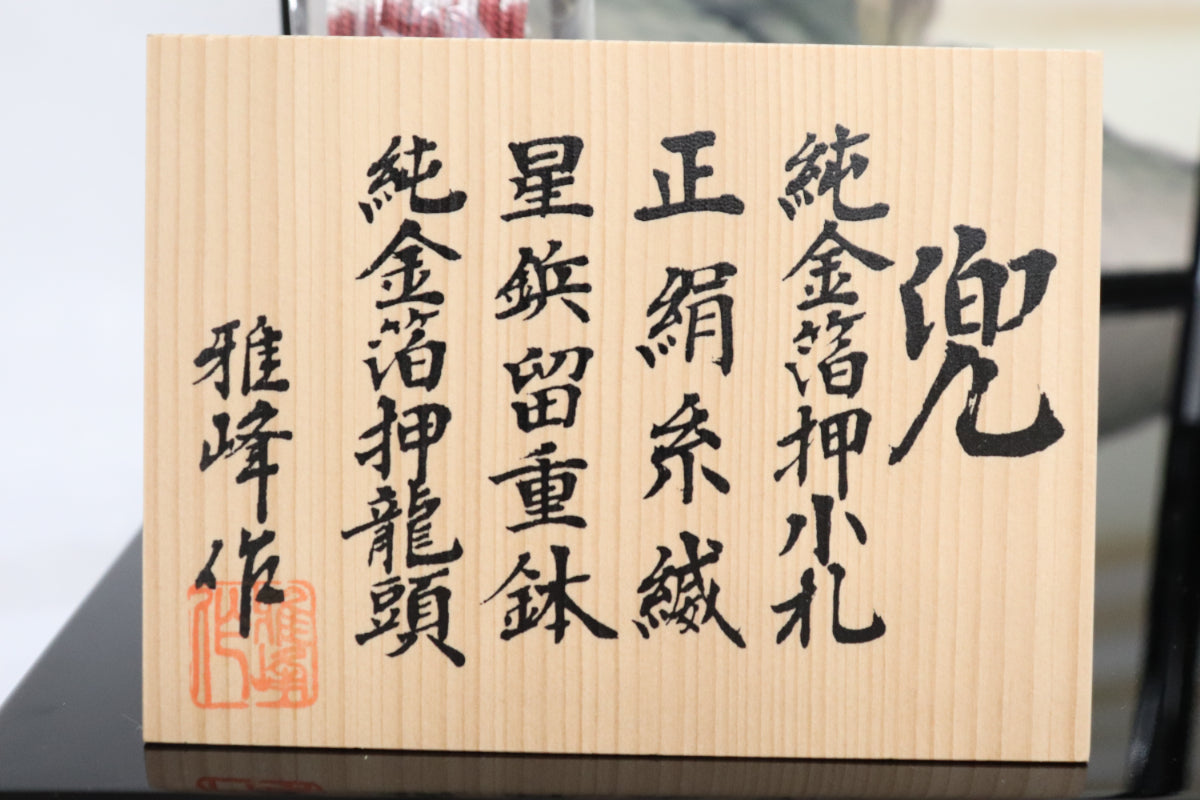 兜
純金箔押小札
正絹糸縅
星鋲留重鉢
純金箔押龍頭
雅峰作
雅峰作